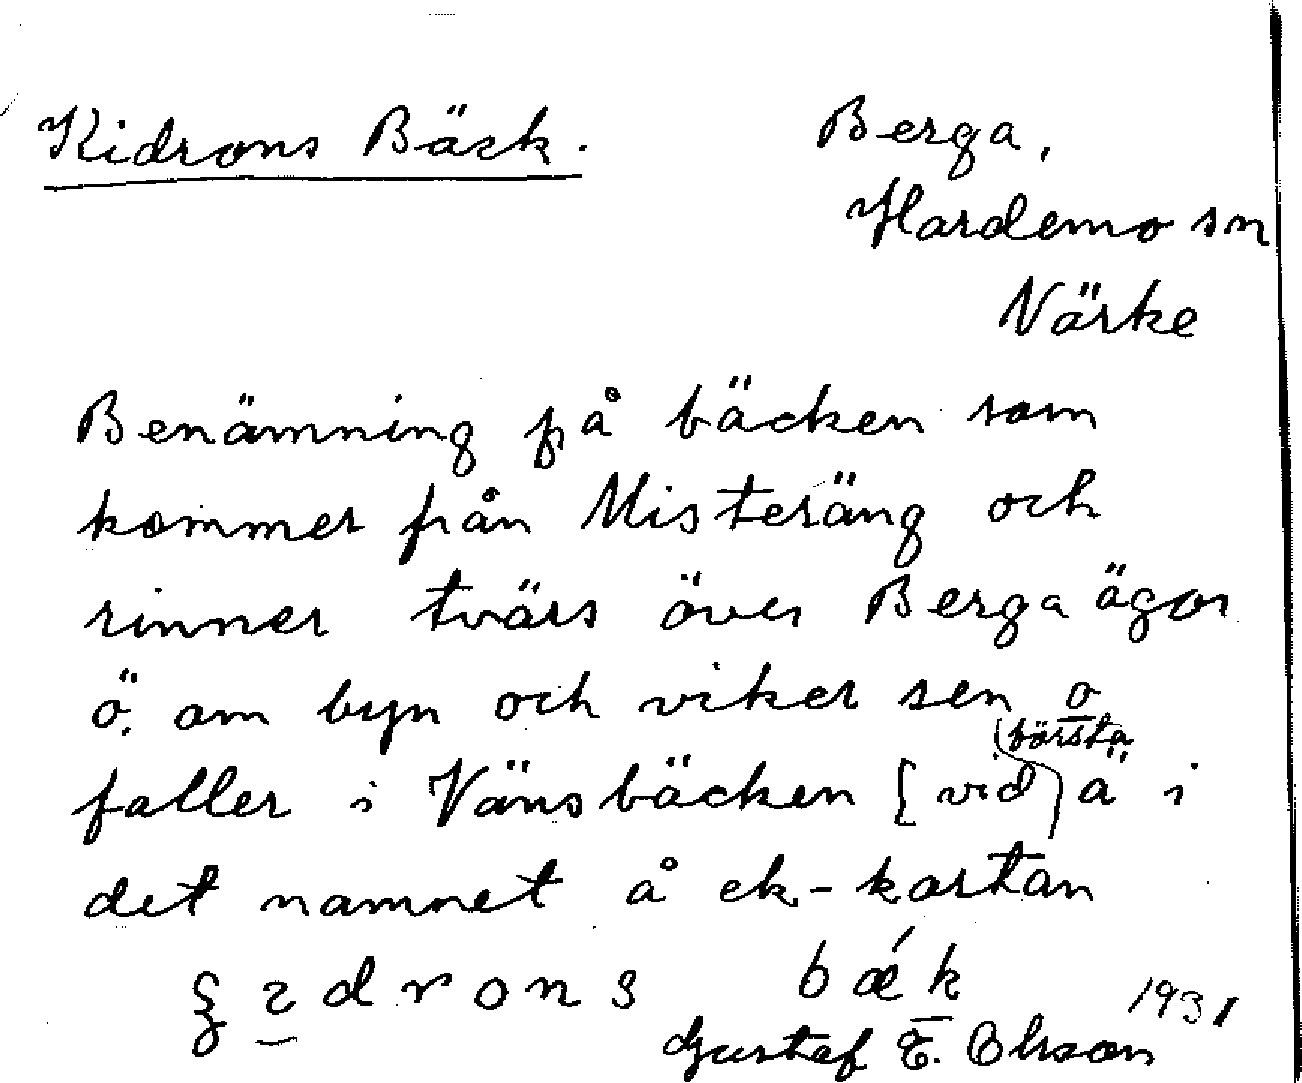 Kidrons Bäck.
Berga,
Hardemo sn
Närke
Benämning på bäcken som
kommer från Misteräng och
rinner tvärs över Berga ägor
ö. om byn och viker sen o
faller i Vänsbäcken [vid första ä i
det namnet å ek-kartan
drons bǽk
Gustaf E. Olsson 1931